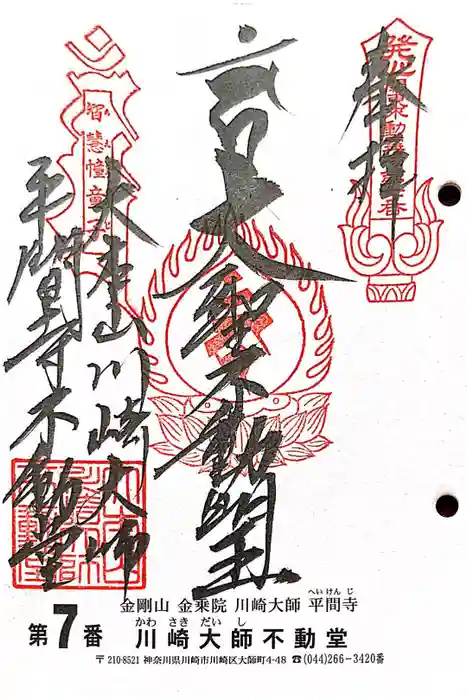 奉拝
発心門不動霊場第七番
大聖不動明王
智慧幢童子
大本山川崎大師
平間寺不動堂
金剛山 金乗院 川崎大師 平間寺
へいけんじ
第7番 川崎大師不動堂
かわさきだいし
〒210-8521 神奈川県川崎市川崎区大師町4-48 ☎(044)266-3420番